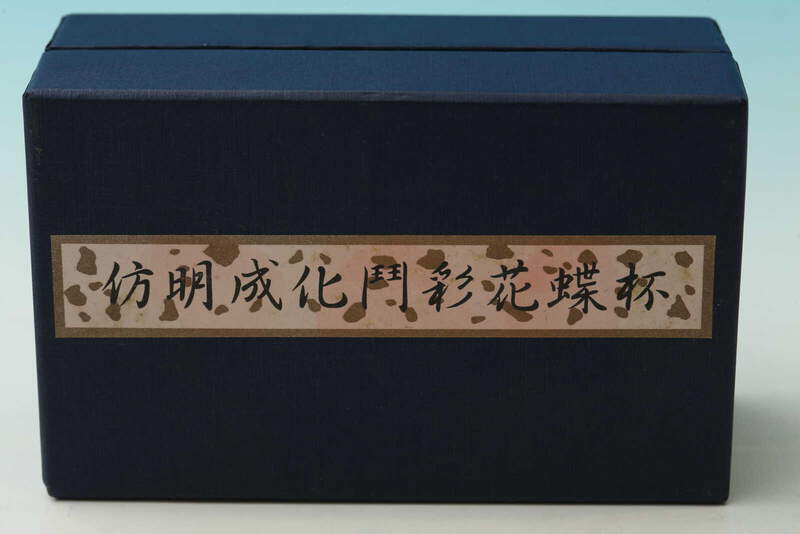 仿明成化鬥彩花蝶杯